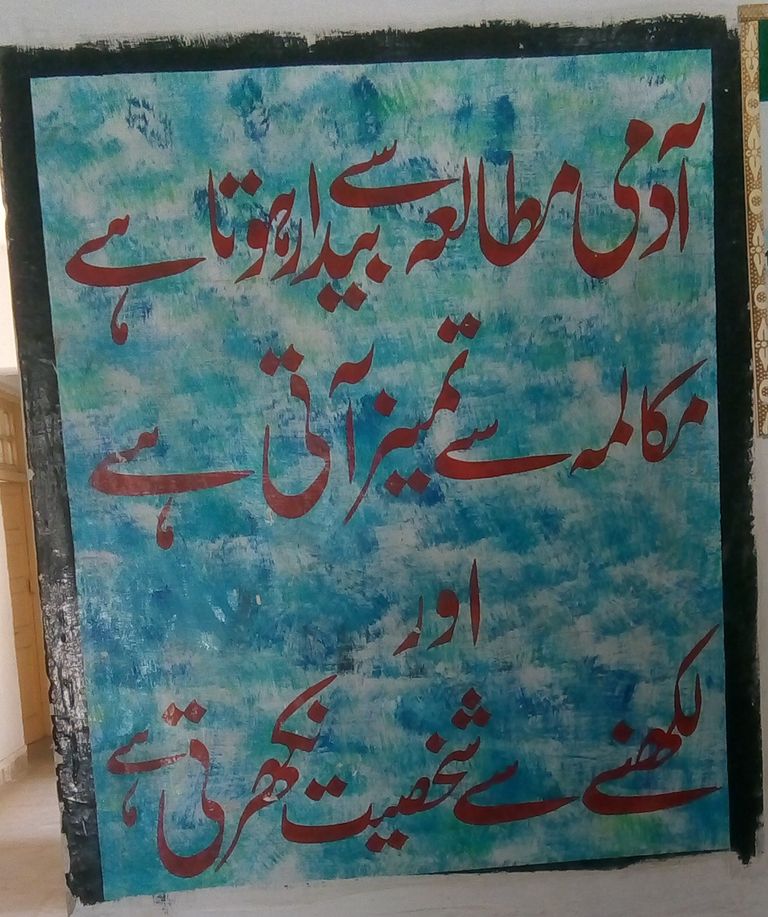 آدمی مطالعہ سے بیدار ہوتا ہے
مکالمہ سے تمیز آتی ہے
اور
لکھنے سے شخصیت نکھرتی ہے